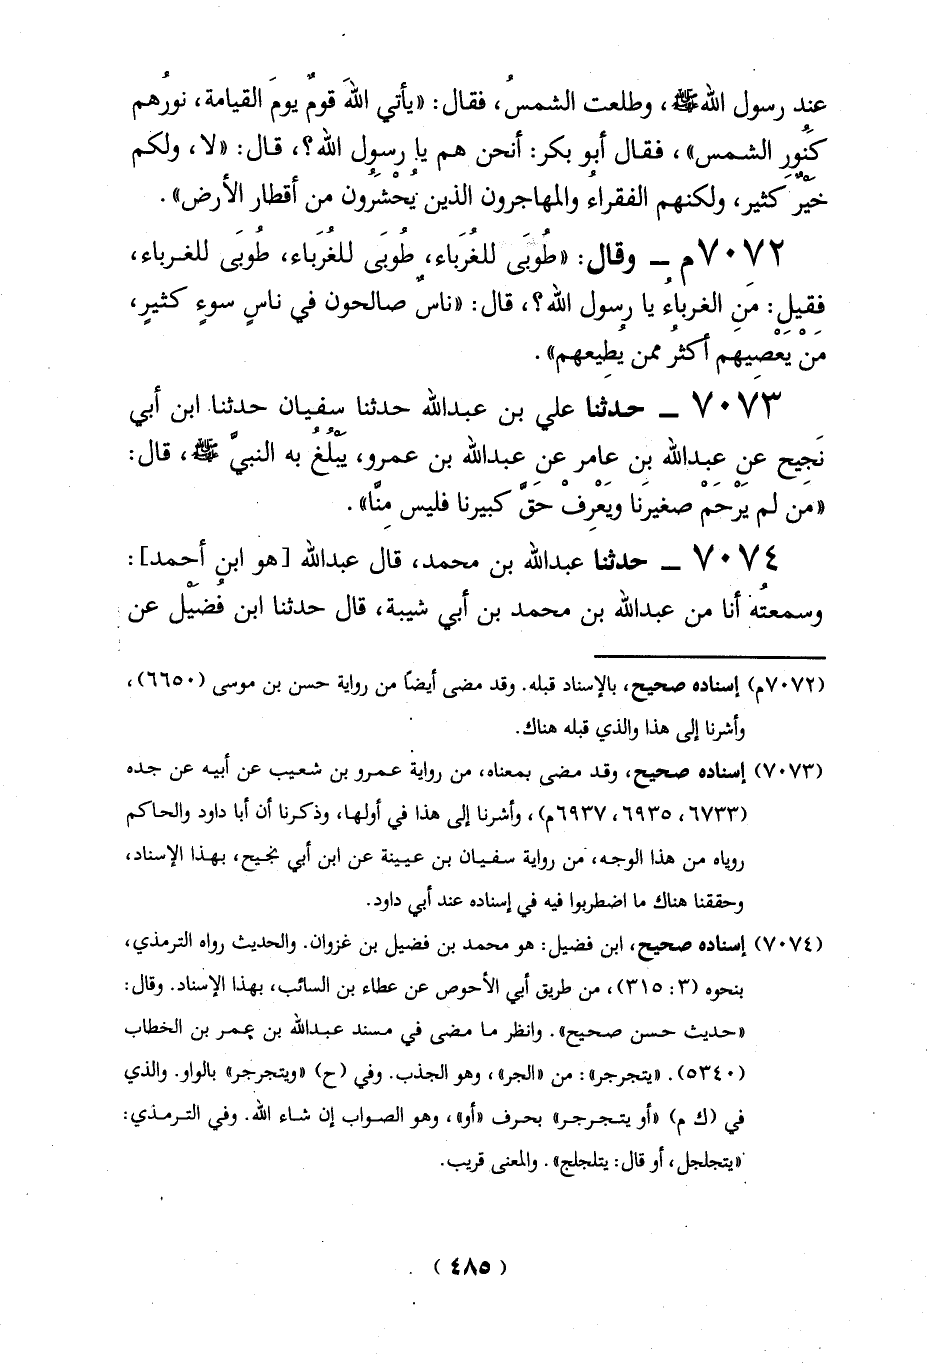 عند رسول الله ﷺ، وطلعت الشمسُ، فقال: «يأتي اللهَ قومٌ يومَ القيامة، نورُهم
كَنُورِ الشمس»، فقال أبو بكر: أنحن هم يا رسول الله؟، قال: «لا، ولكم
خيْرٌ كثير، ولكنهم الفقراءُ والمهاجرون الذين يُحْشَرُون من أقطار الأرض».
٧٠٧٢م ــ وقال: «طُوبَى للغُرَباء، طُوبَى للغُرَباء، طُوبَى للغرباء،
فقيل: مَن الغرباءُ يا رسول الله؟، قال: «ناسٌ صالحون في ناسِ سوءٍ كثيرٍ،
مَنْ يَعْصِيهم أكثرُ ممن يُطِيعهم».
٧٠٧٣ ــ حدثنا علي بن عبدالله حدثنا سفيان حدثنا ابن أبي
نَجِيح عن عبدالله بن عامر عن عبدالله بن عمرو، يَبْلُغُ به النبيَّ ﷺ، قال:
«من لم يَرْحَمْ صغيرنا ويَعْرِفْ حَقَّ كبيرنا فليس مِنَّا».
٧٠٧٤ ــ حدثنا عبدالله بن محمد، قال عبدالله [هو ابن أحمد]:
وسمعتُه أنا من عبدالله بن محمد بن أبي شيبة، قال حدثنا ابن فُضَيْل عن
(٧٠٧٢م) إسناده صحيح، بالإسناد قبله. وقد مضى أيضاً من رواية حسن بن موسى (٦٦٥٠)،
وأشرنا إلى هذا والذي قبله هناك.
(٧٠٧٣) إسناده صحيح، وقد مضى بمعناه، من رواية عمرو بن شعيب عن أبيه عن جده
(٦٧٣٣، ٦٩٣٥، ٦٩٣٧م)، وأشرنا إلى هذا في أولها، وذكرنا أن أبا داود والحاكم
روياه من هذا الوجه، من رواية سفيان بن عيينة عن ابن أبي نجيح، بهذا الإسناد،
وحققنا هناك ما اضطربوا فيه في إسناده عند أبي داود.
(٧٠٧٤) إسناده صحيح، ابن فضيل: هو محمد بن فضيل بن غزوان. والحديث رواه الترمذي،
بنحوه (٣: ٣١٥)، من طريق أبي الأحوص عن عطاء بن السائب، بهذا الإسناد. وقال:
«حديث حسن صحيح». وانظر ما مضى في مسند عبدالله بن عمر بن الخطاب
(٥٣٤٠). «يتجرجر»: من «الجر»، وهو الجذب. وفي (ح) «ويتجرجر» بالواو. والذي
في (ك م) «أو يتجرجر» بحرف «أو»، وهو الصواب إن شاء الله. وفي الترمذي:
«يتجلجل، أو قال: يتلجلج». والمعنى قريب.
( ٤٨٥ )